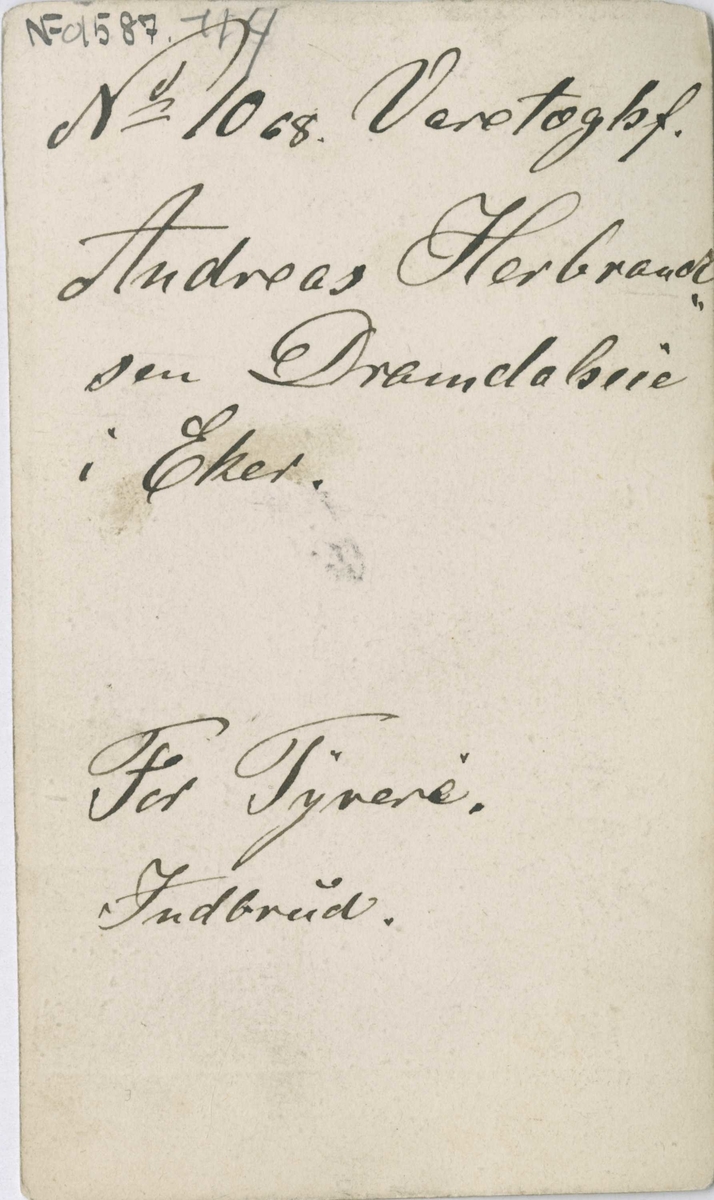 NF 01587. 114
No 1068. Varetægtsf.
Andreas Herbrand
sen Dramdalseie
i Eker.
For Tyveri.
Indbrud.